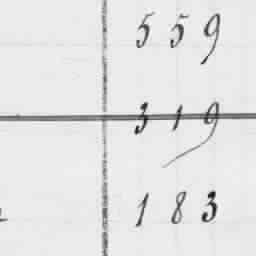 559
319
183